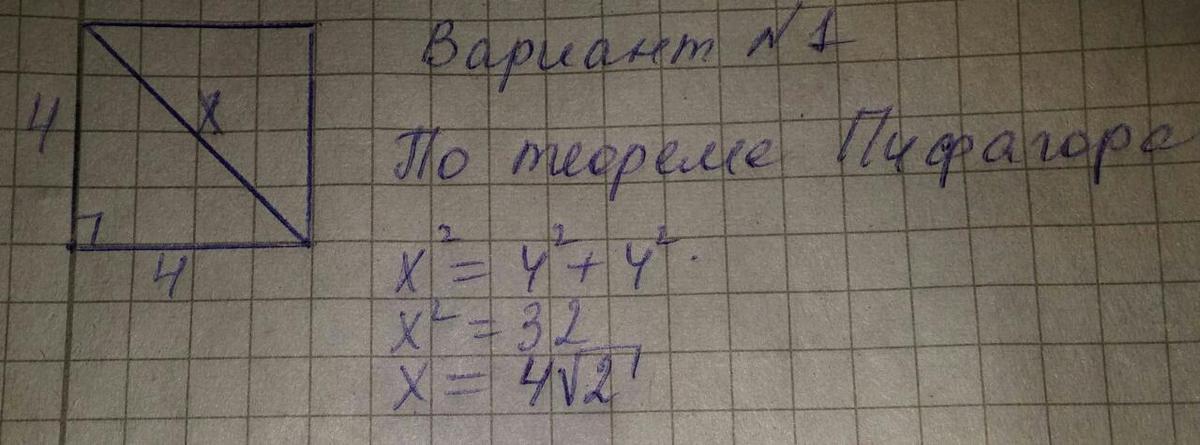 Вариант №1
4
x
По теореме Пифагора
x² = 4² + 4².
4
x² = 32
x = 4√2